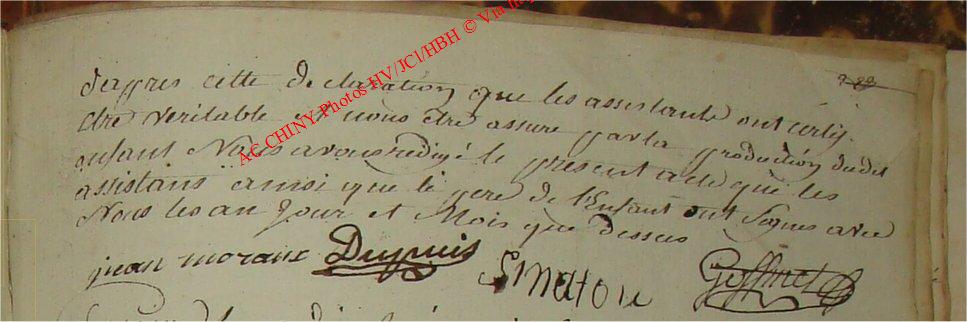 d'apres cette declaration que les assistants ont certif.
être veritable et nous être assuré par la production dudit
enfant Nous avons redigé le present acte que les
assistans ainsi que le pere de l'Enfant ont Signés avec
Nous les an Jour et Mois que dessus
jean morant Dupuis
AC CHINY Photos HV/JCI/HBH © Via